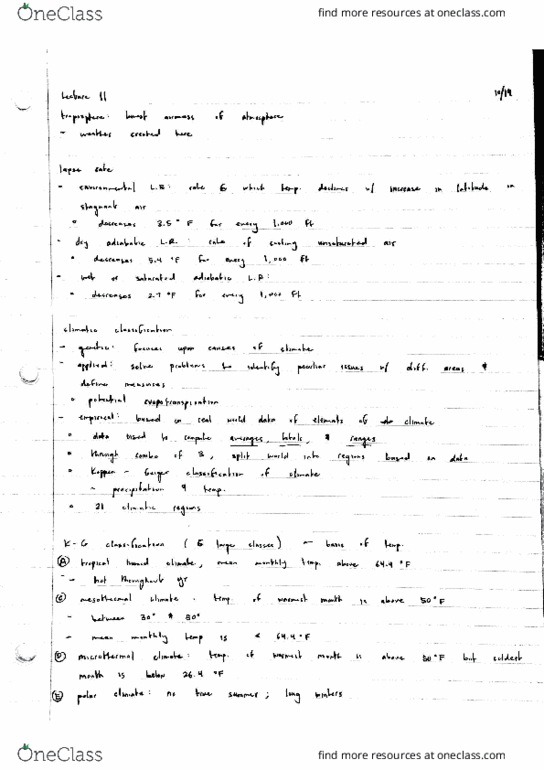 OneClass
find more resources at oneclass.com
Lecture 11
10/14
troposphere: lowest airmass of atmosphere
- weather created here
lapse rate
- environmental L.R: rate @ which temp. declines w/ increase in latitude in
stagnant air
° decreases 3.5° F for every 1,000 ft
- dry adiabatic L.R.: rate of cooling unsaturated air
° decreases 5.4 °F for every 1,000 ft
- wet or saturated adiabatic L.R:
° decreases 2.7 °F for every 1,000 ft
climatic classification
- genetic: focuses upon causes of climate
- applied: solve problems to identify peculiar issues w/ diff. areas &
define measures
° potential evapotranspiration
- empirical: based on real world data of elements of climate
° data used to compute averages, totals, & ranges
° through combo of 3, split world into regions based on data
° Koppen - Geiger classification of climate
- precipitation & temp.
° 21 climatic regions
K-G classification (5 large classes) - basis of temp.
(A) tropical humid climate, mean monthly temp. above 64.4 °F
- hot throughout yr
(C) mesothermal climate. temp. of warmest month is above 50°F
- between 30° &
- mean monthly temp is < 64.4 °F
(D) microthermal climate: temp. of warmest month is above 50°F but coldest
month is below 26.4 °F
(E) polar climate: no true summer; long winters
OneClass
find more resources at oneclass.com